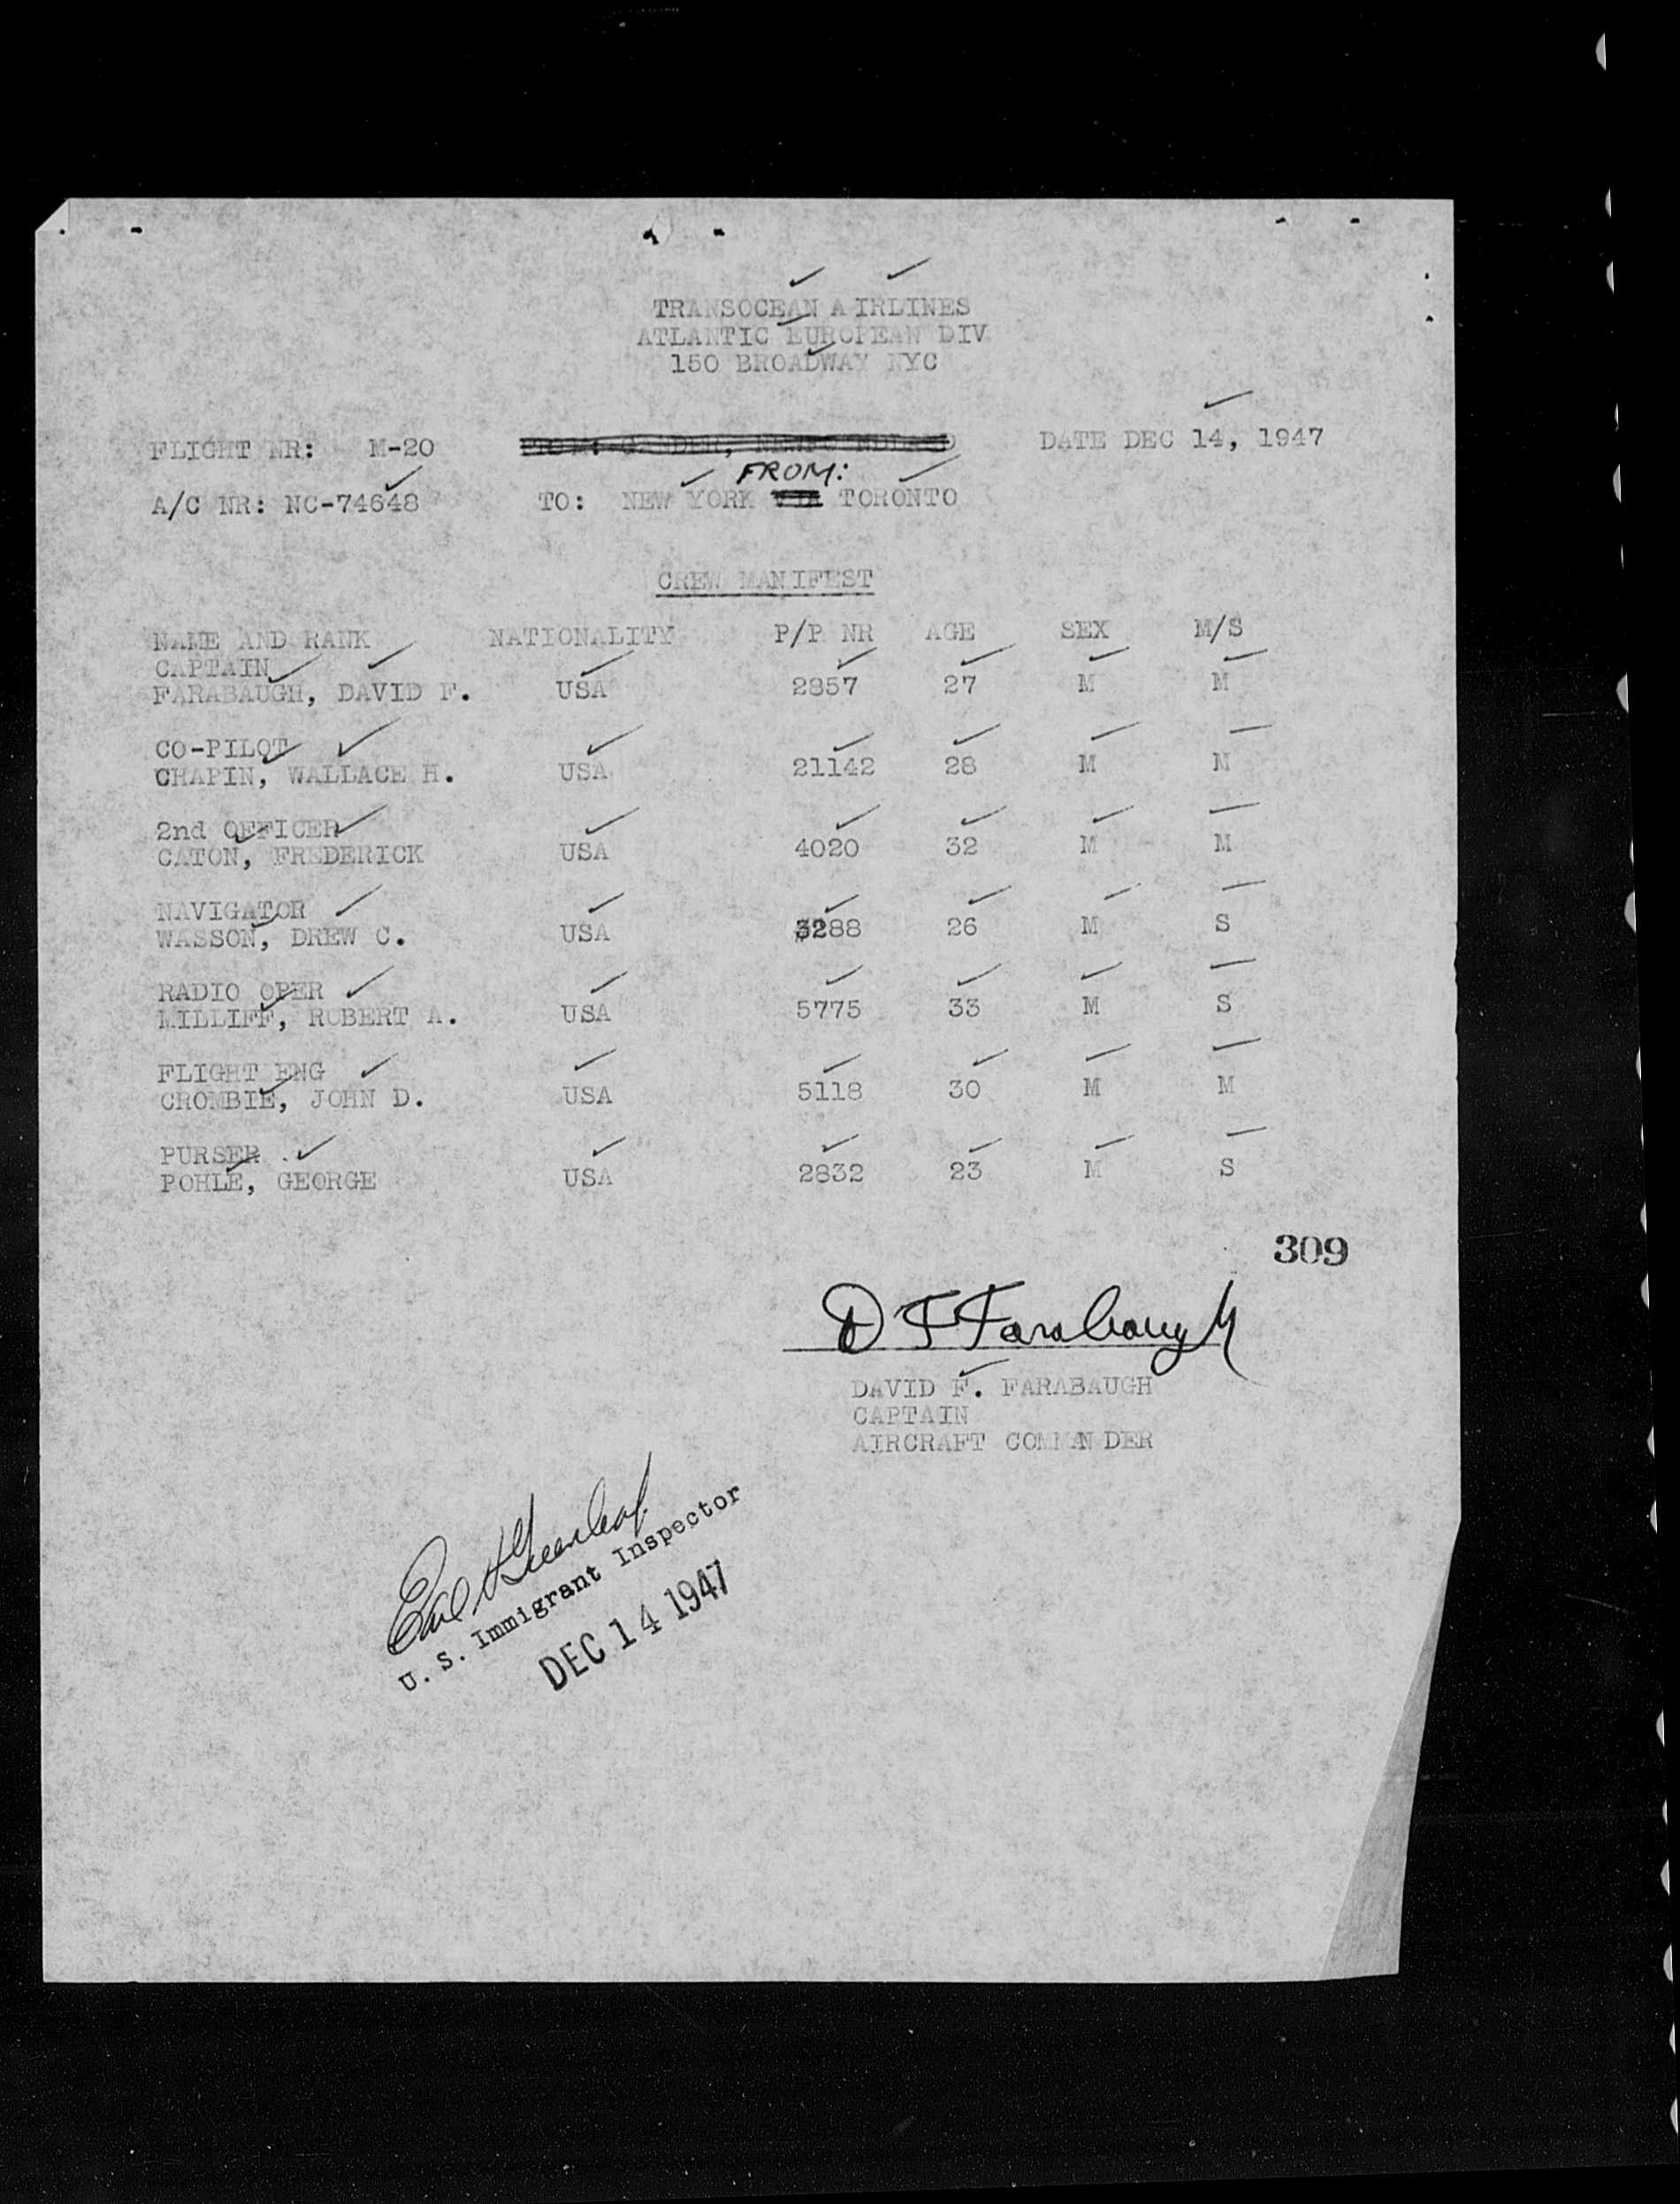 TRANSOCEAN AIRLINES
ATLANTIC EUROPEAN DIV
150 BROADWAY NYC
FLIGHT NR: M-20 FROM: GANDER, NEWFOUNDLAND DATE DEC 14, 1947
FROM:
A/C NR: NC-74648 TO: NEW YORK VIA TORONTO
CREW MANIFEST
NAME AND RANK NATIONALITY P/P NR AGE SEX M/S
CAPTAIN
FARABAUGH, DAVID F. USA 2857 27 M M
CO-PILOT
CHAPIN, WALLACE H. USA 21142 28 M M
2nd OFFICER
CATON, FREDERICK USA 4020 32 M M
NAVIGATOR
WASSON, DREW C. USA 3288 26 M S
RADIO OPER
MILLIFF, ROBERT A. USA 5775 33 M S
FLIGHT ENG
CROMBIE, JOHN D. USA 5118 30 M M
PURSER
POHLE, GEORGE USA 2832 23 M S
309
D F Farabaugh
DAVID F. FARABAUGH
CAPTAIN
AIRCRAFT COMMANDER
Earl H Greenleaf
U. S. Immigrant Inspector
DEC 14 1947